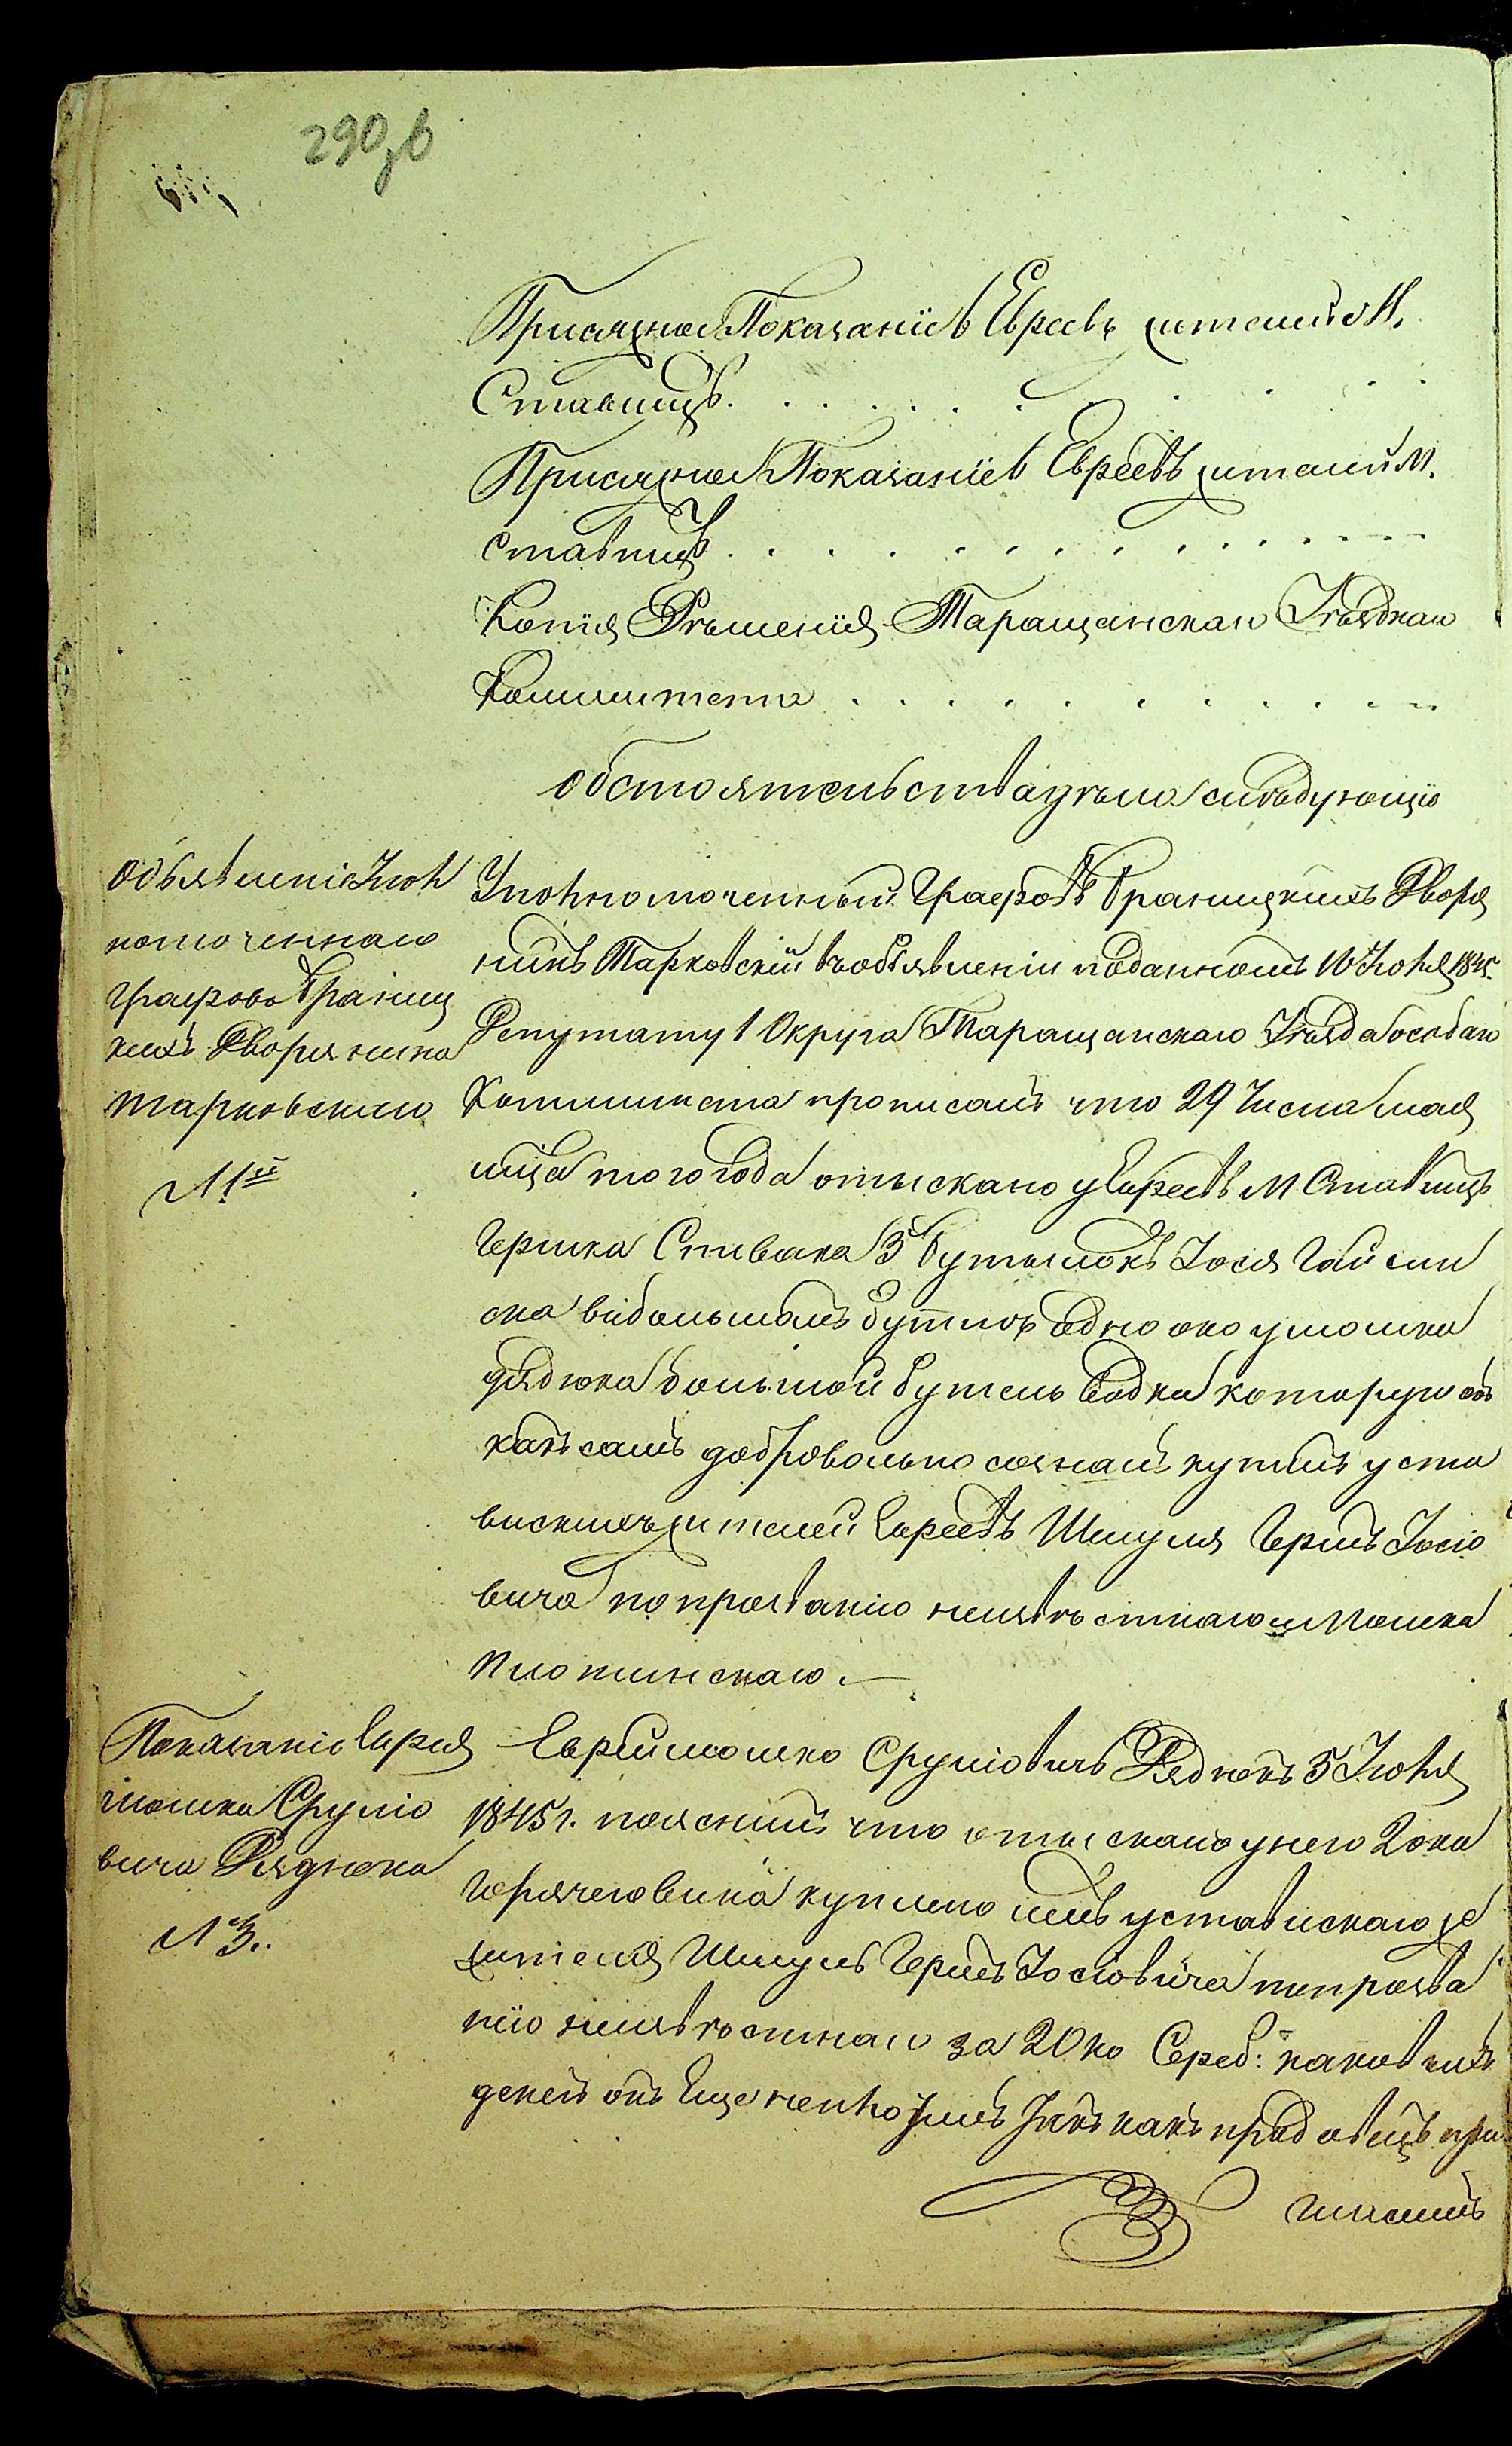 290,об
Присяжное Показаніе 6 Евреевъ жителей М.
Ставищъ. . . . . . . . . .
Присяжное Показаніе 6 Евреевъ жителей М.
Ставищъ . . . . . . . . . . . .
Копія Рѣшенія Таращанскаго Уѣзднаго
Коммитета . . . . . . . . . .
Обстоятельства дѣла слѣдующіе
Объявленіе Упол
номоченнаго
Графовъ Браниц
кихъ Дворянина
Тарковскаго
№ 1й
Уполномоченный Графовъ Браницкихъ Дворя
нинъ Тарковскій въ объявленіи поданномъ 10 Іюля 1845.
Депутату 1 Округа Таращанскаго Уѣзда особаго
Коммитета прописалъ что 29 Числа мая
мѣсяца того года отыскано у Евреевъ М Ставищъ
Гершка Спивака 3 бутылокъ Іося Гайсин
ска въ большомъ бутлѣ одно око у мошка
дядюка большой бутель водки которую онъ
какъ самъ добровольно сознался купилъ у ста
вискихъ жителей Евреевъ Шмуля Гершъ Іосіо
вича по прозванію неизвѣстнаго и Мошка
Плотинскаго.—
Показаніе Еврея
мошка Сруліо
вича Дядюка
№ 3.
Еврей мошко Сруліовичъ Дядюкъ 5 Іюля
1845 г. пояснилъ что отыскано у него 2 ока
горячего вина куплено имъ у ставискаго же
жителя Шмуль Гершъ Іосіовича по прозва
нію неизвѣстнаго за 20 ко Сереб: каковыхъ
денегъ онъ Еще неплотилъ Такъ какъ продавецъ при